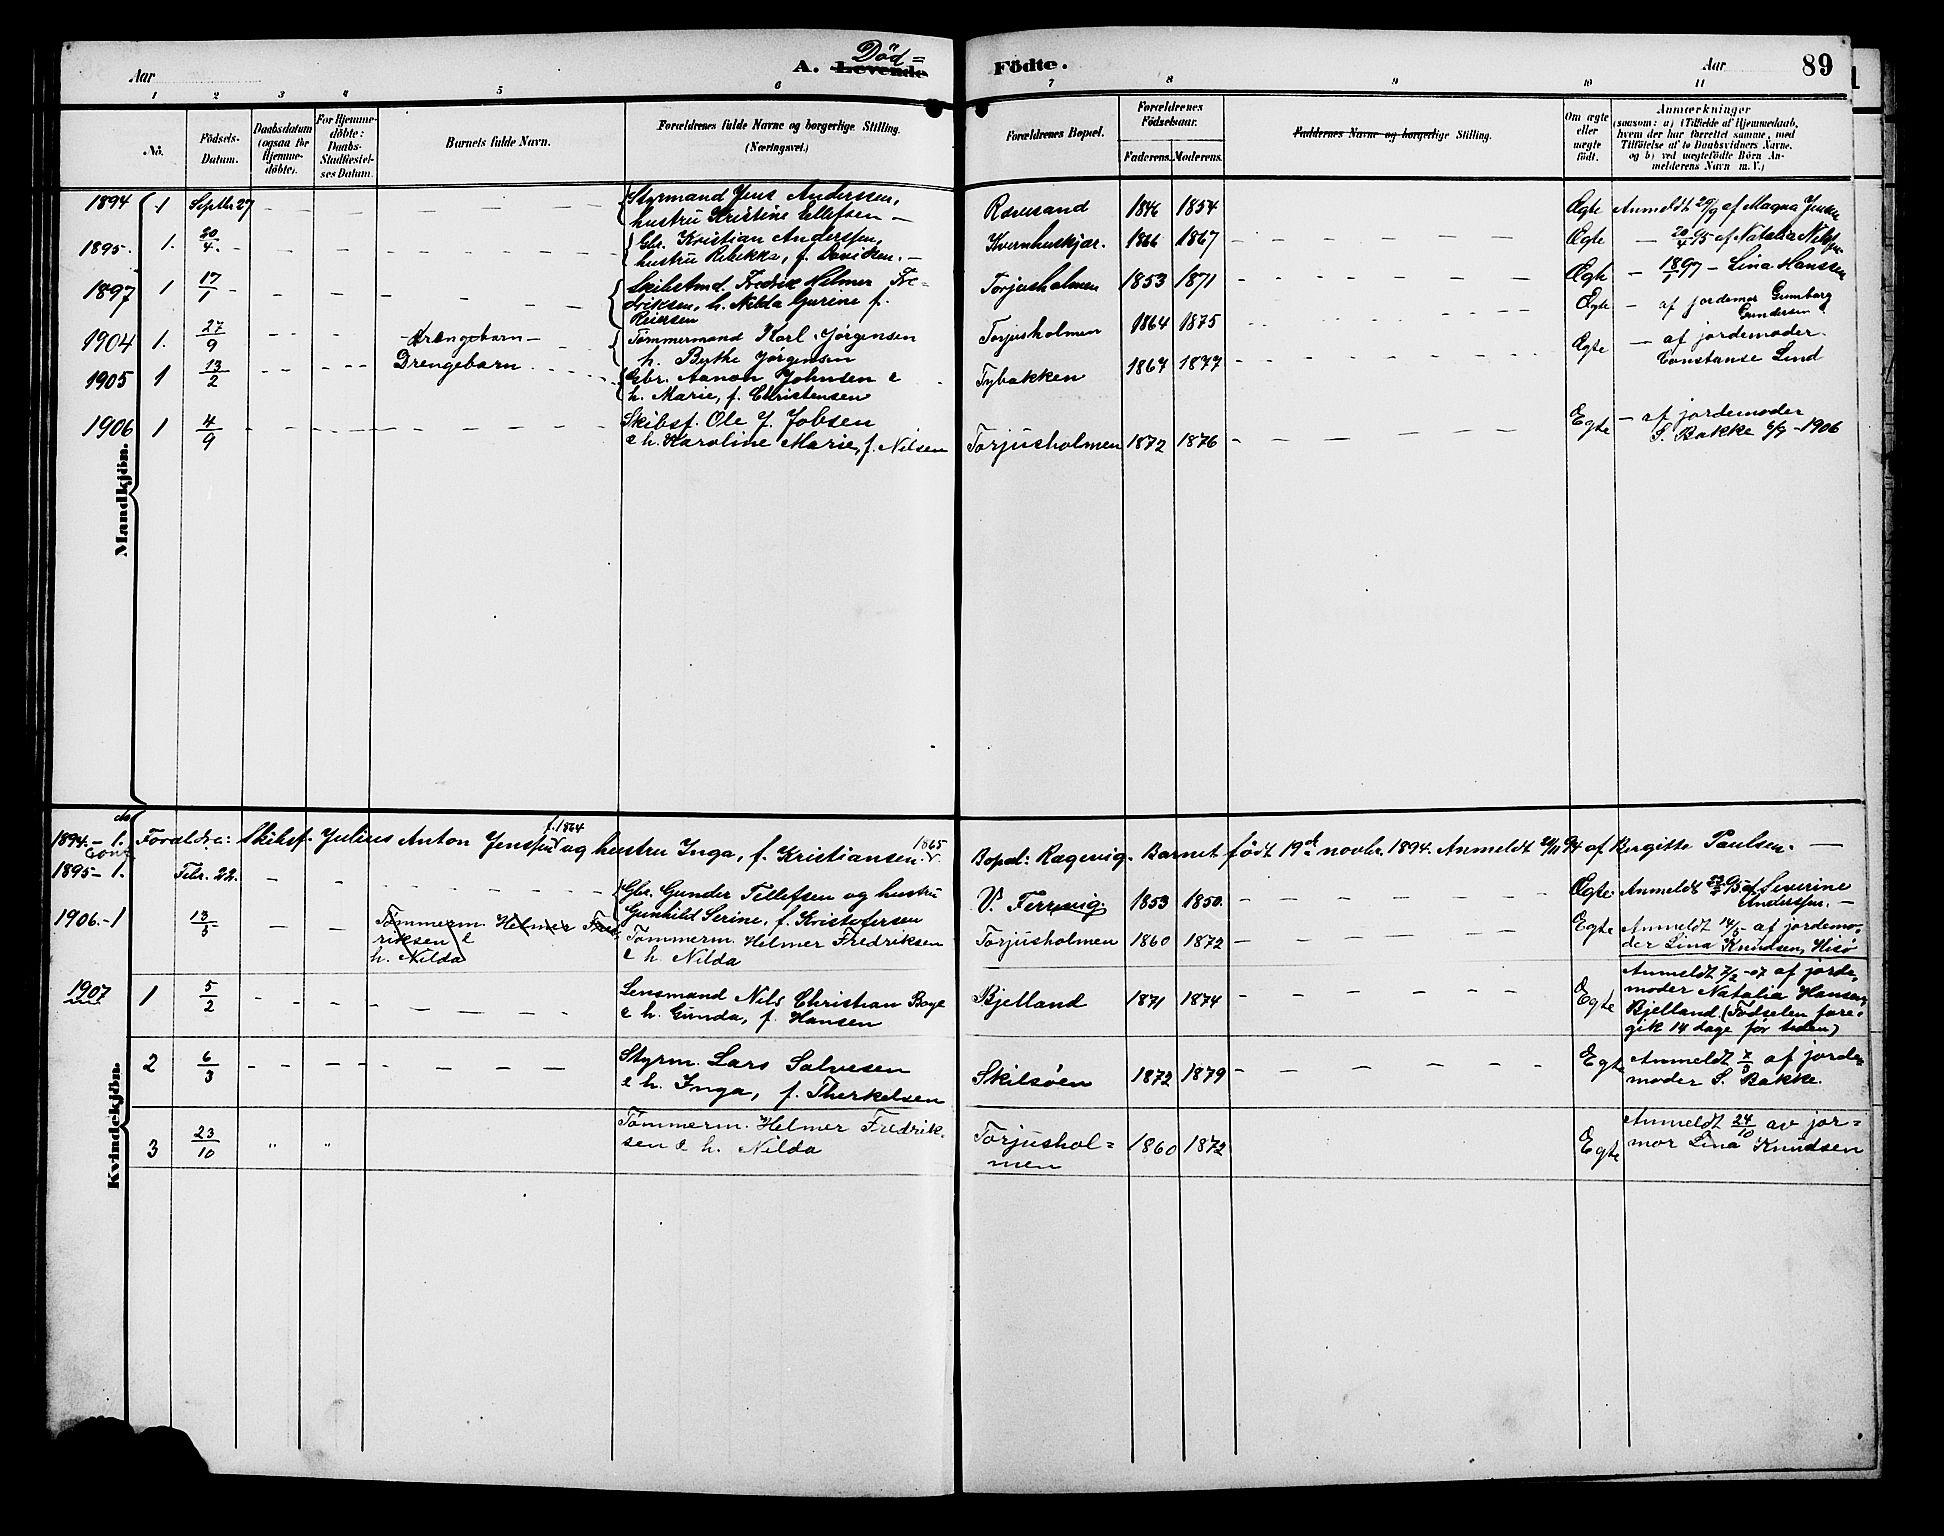 Aar
A. Levende Död=
Födte.
Aar
89
1 2 3 4 5 6 7 8 9 10 11
No.
Födsels-Datum.
Daabsdatum (ogsaa for Hjemmedöbte).
For Hjemmedöbte: Daabs-Stadfæstelses Datum.
Barnets fulde Navn.
Forældrenes fulde Navne og borgerlige Stilling. (Næringsvei.)
Forældrenes Bopæl.
Forældrenes Födselsaar.
Faderens. Moderens.
Faddernes Navne og borgerlige Stilling.
Om ægte eller uægte födt.
Anmærkninger
(saasom: a) i Tilfælde af Hjemmedaab, hvem der har forrettet samme, med Tilföielse af to Daabsvidners Navne. og b) ved uægtefödte Börn Anmelderens Navn m. V.)
Mandkjön.
1894 1 Septbr 27 Styrmand Jens Anderssen, hustru Kristine Ellefsen – Rævesand 1846 1854 Ægte Anmeldt 29/9 af Magna Jensen
1895. 1. 20/4. Gbr. Kristian Anderssen, hustru Rebekka, f. Daviksen. – Kvernhuskjær. 1866 1867 Ægte – 20/4 95 af Natalia Nilssen
1897 1 17/1 Skibstmd. Fredrik Helmer Fredriksen, h. Nilda Gurine f. Reiersen Torjusholmen 1853 1871 Ægte – 18/1 97 – Lina Hanssen
1904 1. 27/9 Drengebarn Tømmermand Karl Jørgensen h. Berthe Jørgensen Torjusholmen 1864 1875 Ægte – af jordemor Gunnborg Gundersen
1905 1 13/2 Drengebarn Gbr. Aanon Johnsen & h. Marie, f. Christensen Tybakken 1867 1877 Ægte – af jordemoder Constanse Lind
1906 1 4/9 Skibsf. Ole J. Jobsen & h. Karoline Marie, f. Nilsen Torjusholmen 1872 1876 Egte – af jordemoder S. Bakke 6/9 – 1906
Kvindekjön.
1894 – 1. Forældre: Skibsf. Julius Anton Jenssen f. 1864 og hustru Inga, f. Kristiansen 1865. Bopæl: Rægevig. Barnet født 19de novbr. 1894. Anmeldt 20/11 94 af Bergitte Paulsen. –
1895 – 1. Febr. 22. Gbr. Gunder Tellefsen og hustru Gunhild Serine, f. Kristofersen V. Ferrevig. 1853 1850. Ægte Anmeldt 23/2 95 af Severine Anderssen. –
1906. – 1 13/5 Tømmerm. Helmer Fredriksen & h. Nilda Tømmerm. Helmer Fredriksen & h. Nilda Torjusholmen 1860 1872 Egte Anmeldt 14/5 af jordemoder Lina Knudsen, Hisö
1907 1 5/2 Lensmand Nils Christian Boye & h. Gunda, f. Hansen Bjelland 1871 1874 Egte Anmeldt 7/2 – 07 af jordemoder Natalia Hansen, Bjelland. (Fødselen foregik 14 dage før tiden)
2 6/3 Styrm. Lars Salvesen & h. Inga, f. Therkelsen Skilsøen 1872 1879 Egte Anmeldt 7/3 af jordemoder S. Bakke.
3 23/10 " " Tømmerm. Helmer Fredriksen & h. Nilda Torjushol=men 1860 1872 Egte Anmeldt 24/10 av jor=mor Lina Knudsen